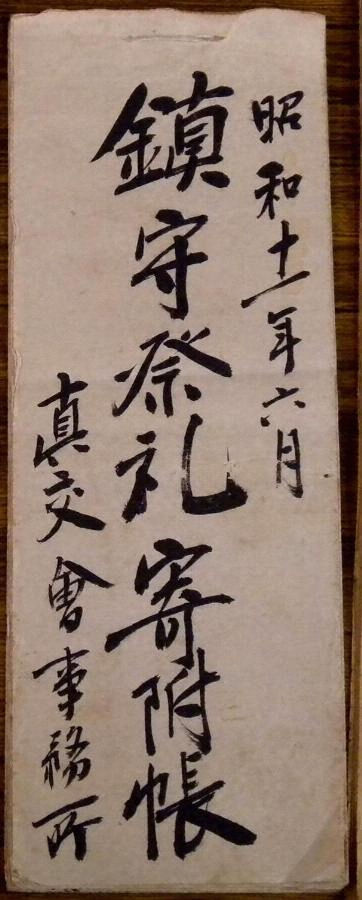 昭和十一年六月
鎮守祭礼寄附帳
真交會事務所